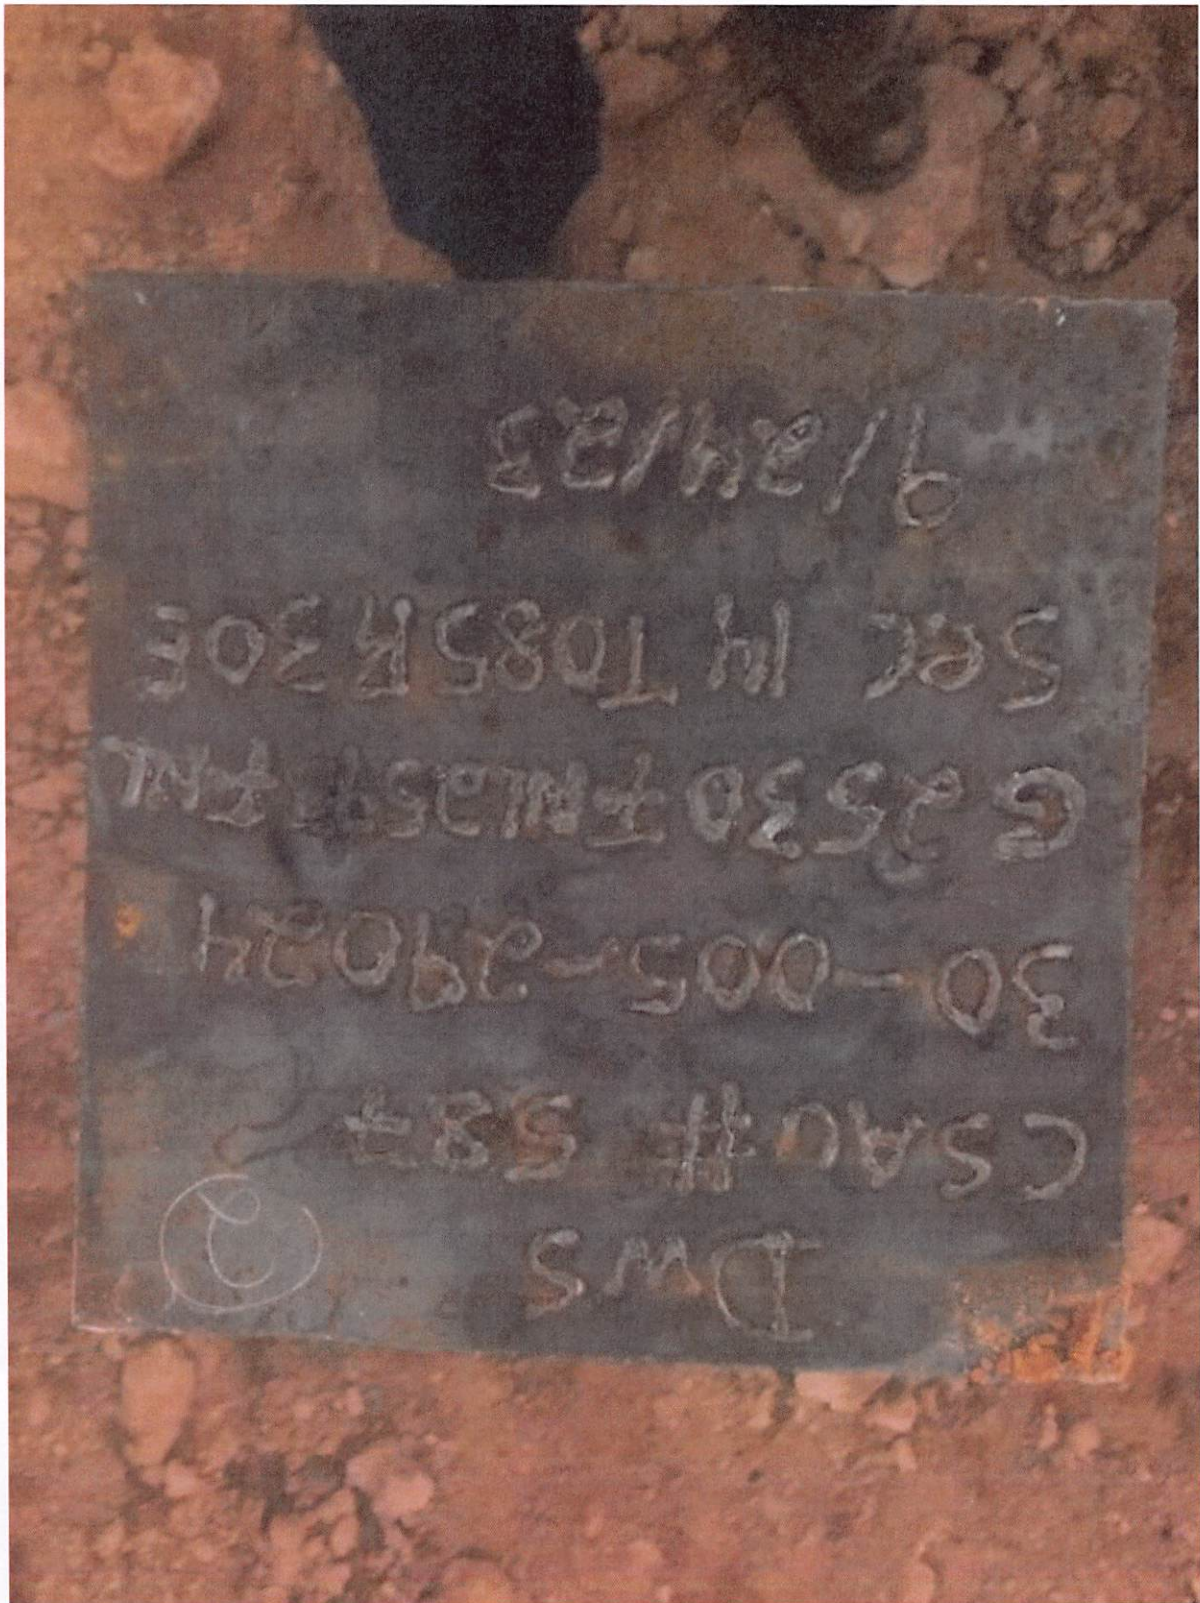 DWS
2
CSAU # 587
30-005-29024
G 2530 FNL 2591 FWL
Sec 14 T08S R30E
9/24/23